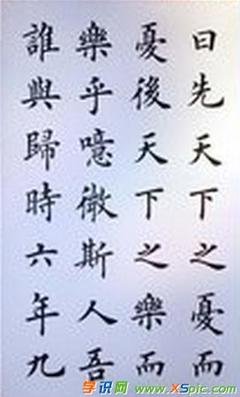 曰先天下之憂而
憂後天下之樂而
樂乎噫微斯人吾
誰與歸時六年九
学识网
www.XSpic.com